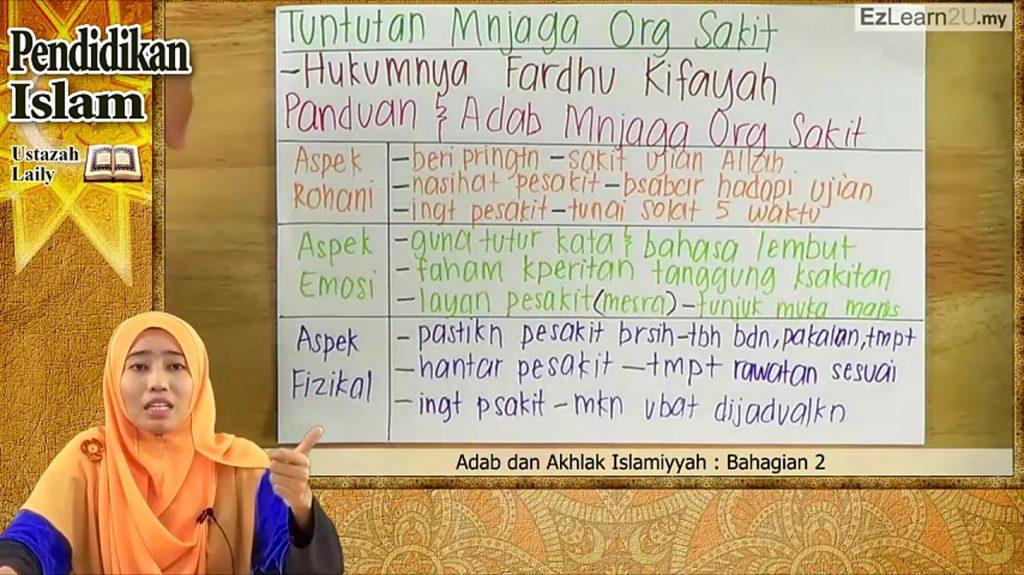 EzLearn2U.my
Pendidikan
Islam
Ustazah
Laily
Tuntutan Mnjaga Org Sakit
-Hukumnya Fardhu Kifayah
Panduan & Adab Mnjaga Org Sakit
Aspek
Rohani
-beri pringtn -sakit ujian Allah.
-nasihat pesakit -bsabar hadapi ujian
-ingt pesakit -tunai solat 5 waktu
Aspek
Emosi
-guna tutur kata & bahasa lembut
-faham kperitan tanggung ksakitan
-layan pesakit (mesra) -tunjuk muka manis
Aspek
Fizikal
-pastikn pesakit brsih -tbh bdn, pakaian, tmpt
-hantar pesakit -tmpt rawatan sesuai
-ingt psakit -mkn ubat dijadualkn
Adab dan Akhlak Islamiyyah : Bahagian 2